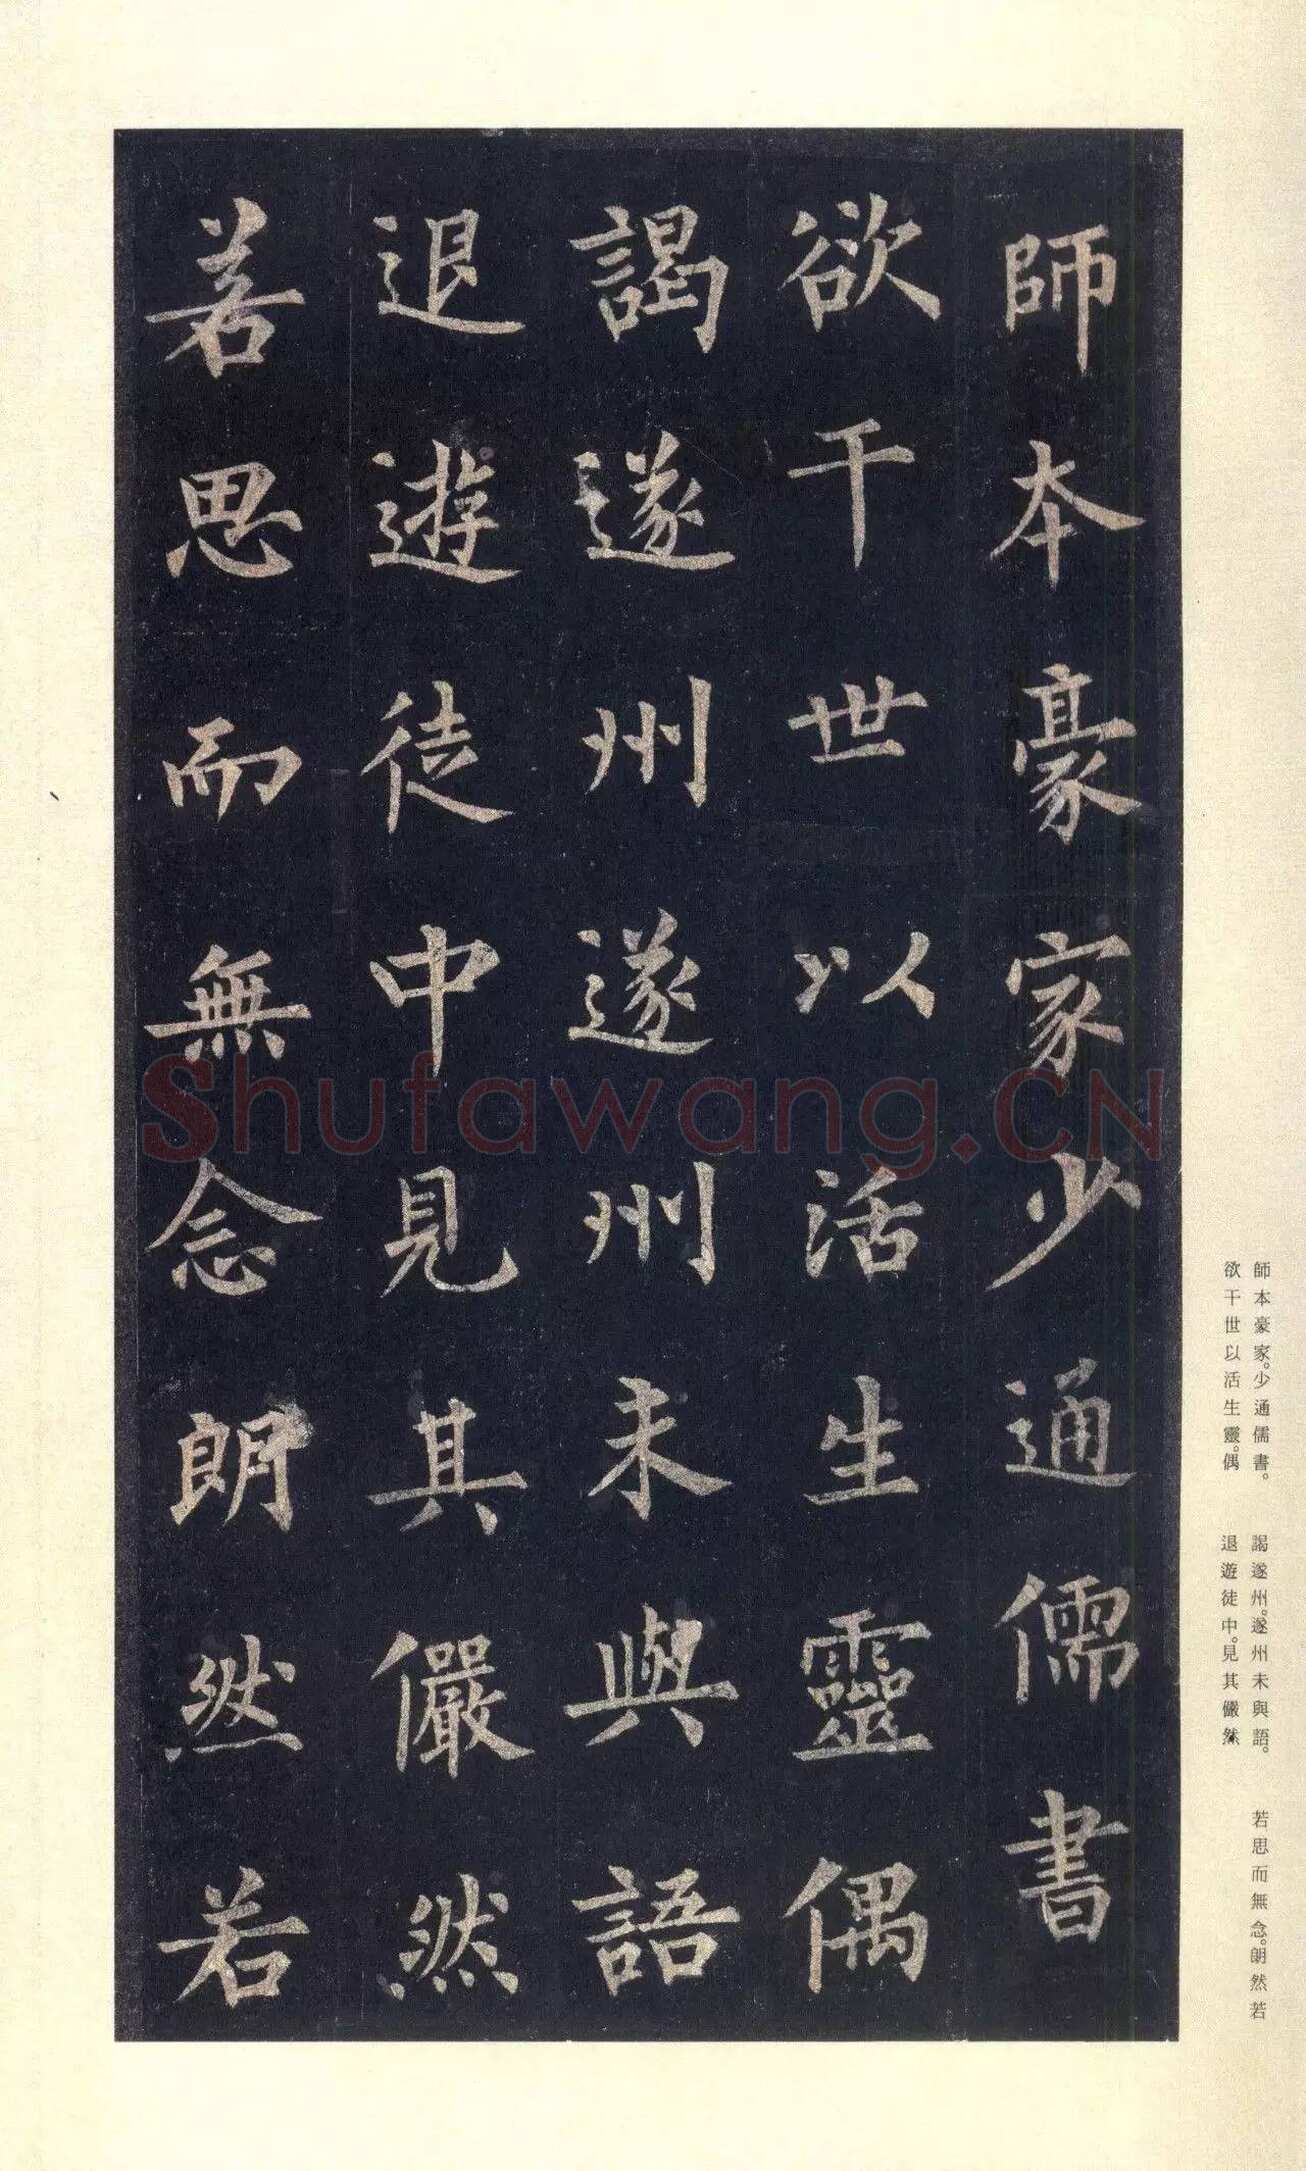 師本豪家少通儒書
欲干世以活生靈偶
謁遂州遂州未與語
退遊徒中見其儼然
若思而無念朗然若
Shufawang.CN
師本豪家。少通儒書。
欲干世以活生靈。偶
謁遂州。遂州未與語。
退遊徒中。見其儼然
若思而無念。朗然若